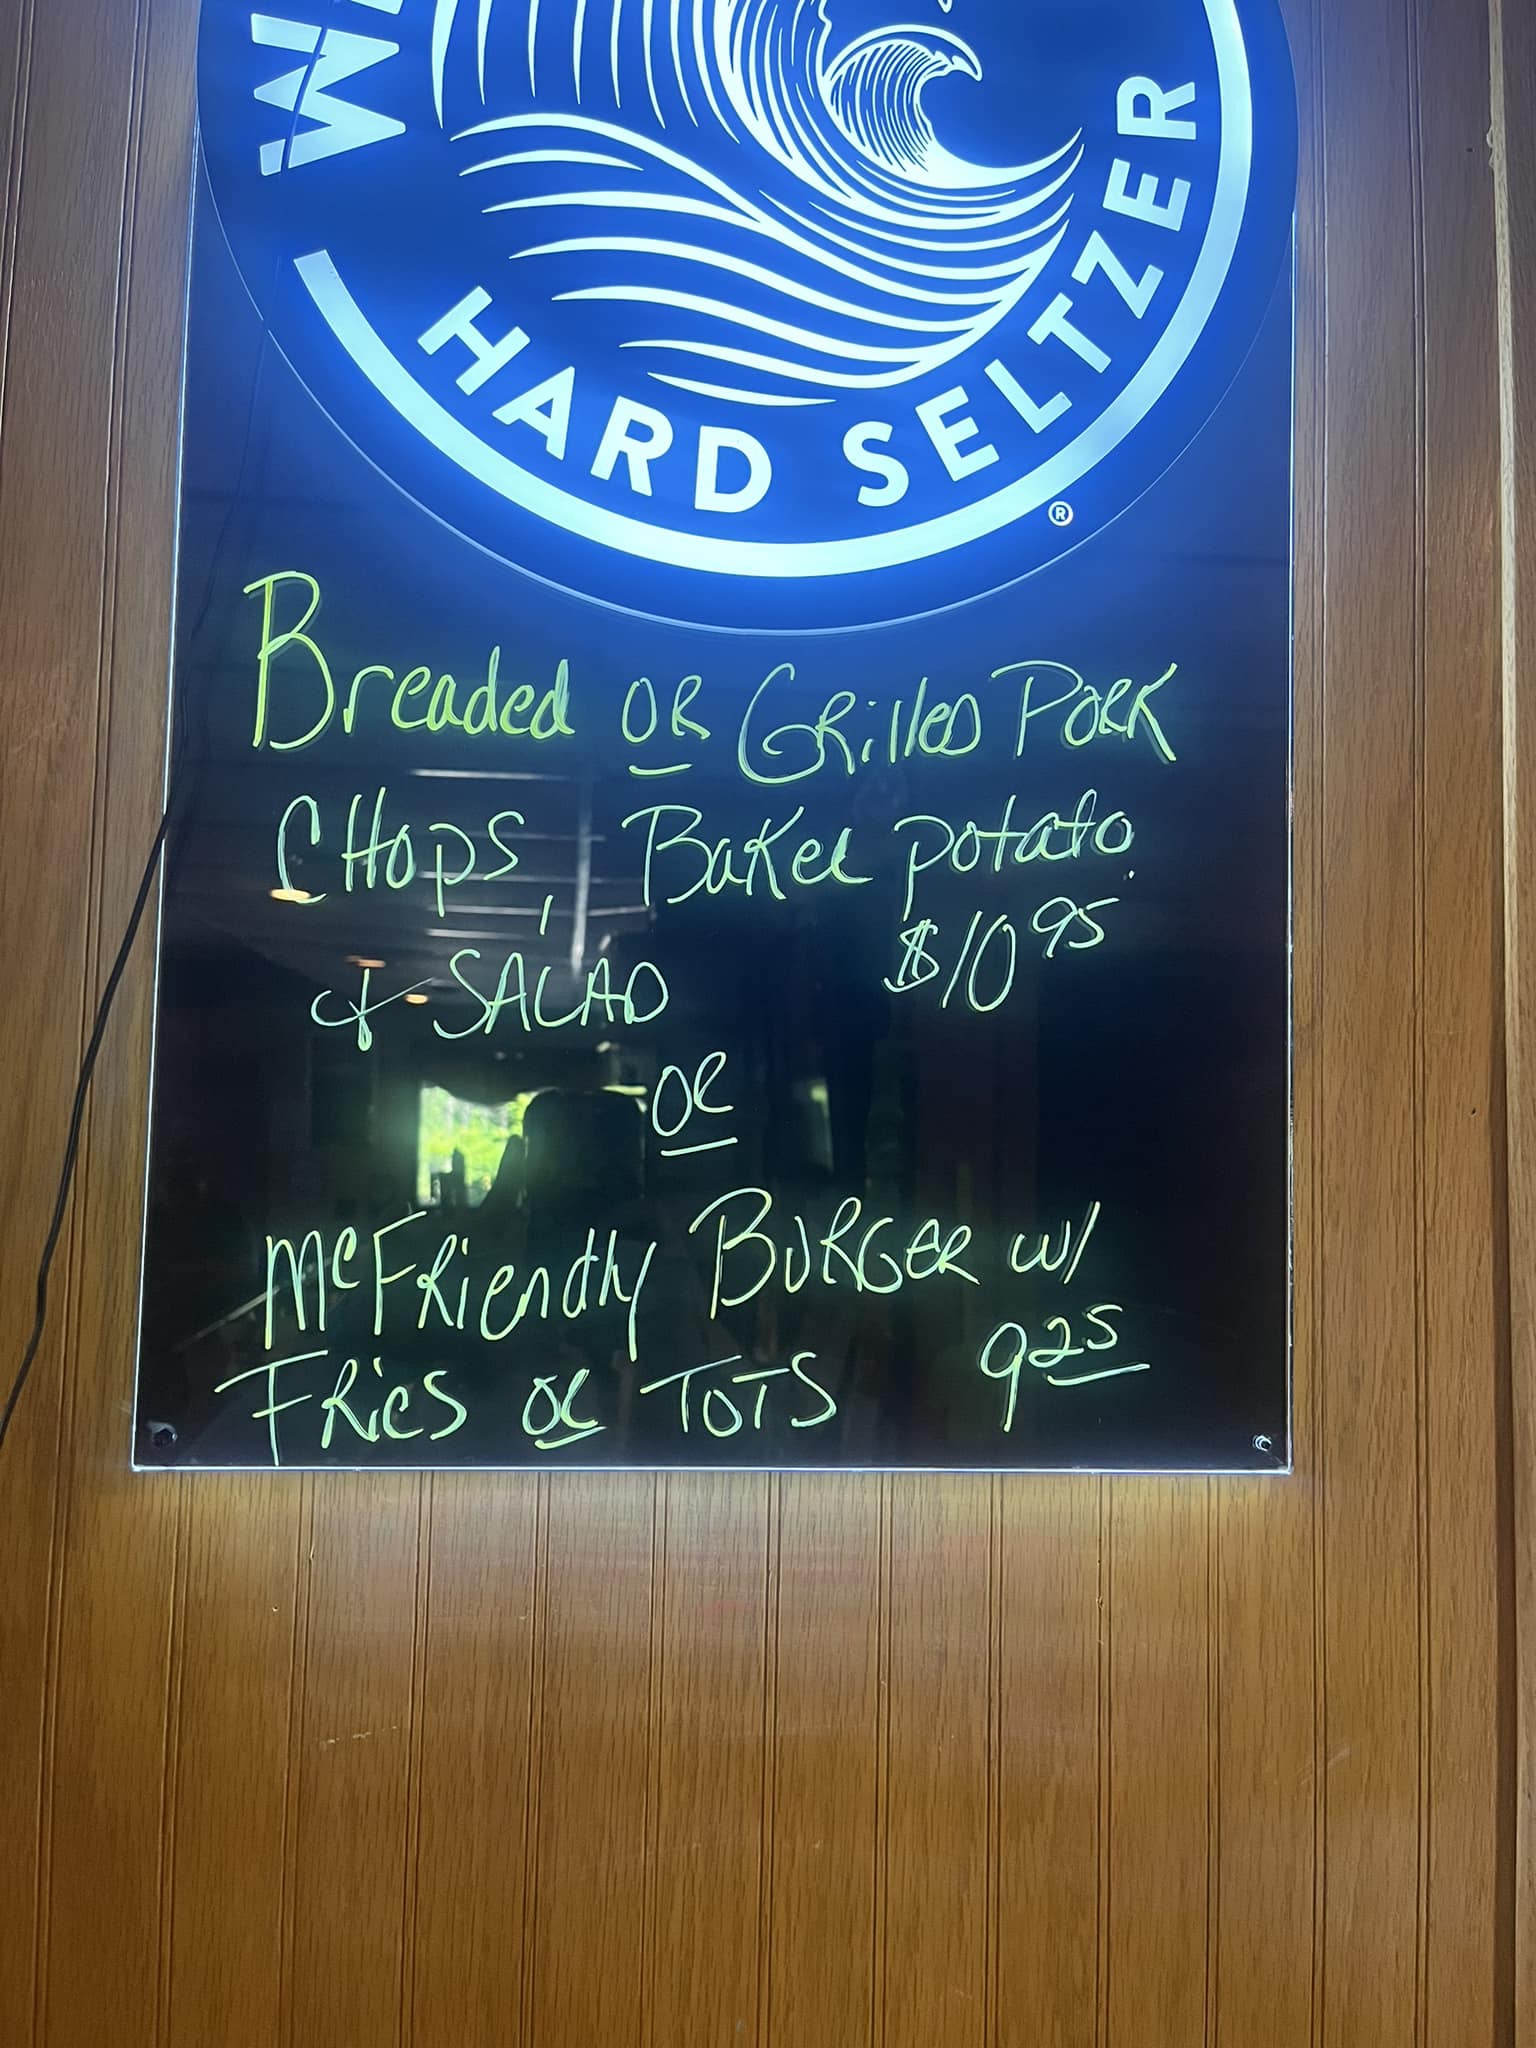 W
HARD SELTZER
®
Breaded OR GRilled PORK
CHops, BaKed potato.
+ SALAD $10 95
OR
McFRiendly BURGER w/
FRies OR TOTS 9 25